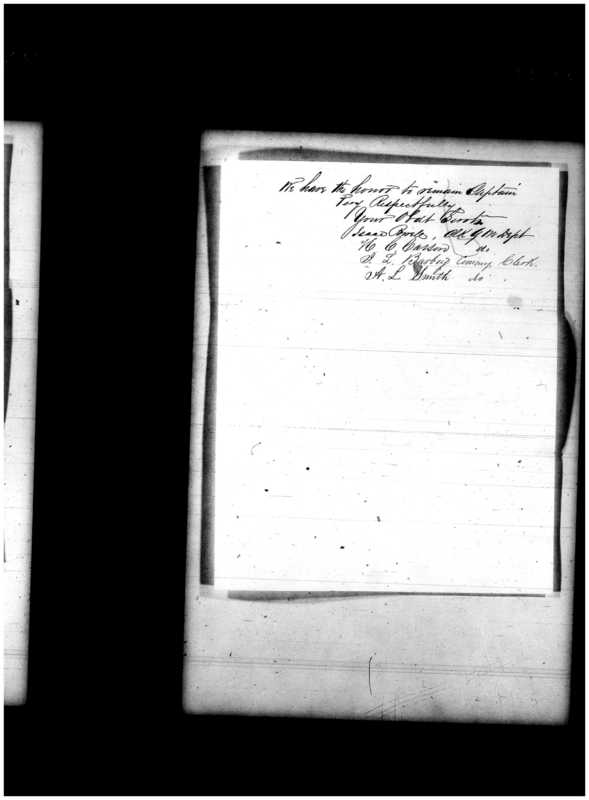 We have the honor to remain Captain
Very Respectfully
Your Obdt Servts
Isaac Clk Q M Dept
H. C. do
L. Commy Clerk.
A. L. Smith do